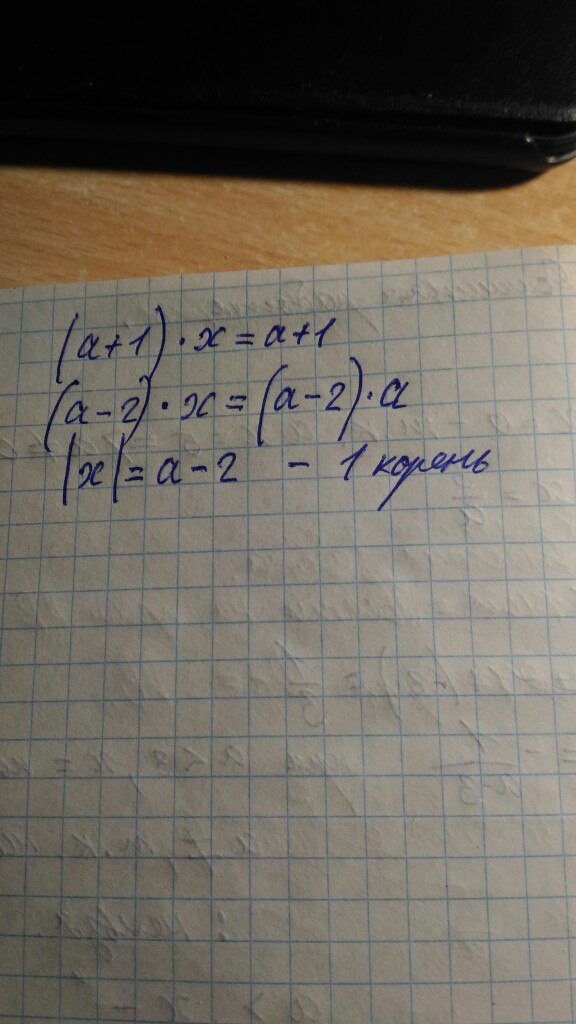 (a+1)·x=a+1
(a-2)·x=(a-2)·a
|x|=a-2 - 1 корень